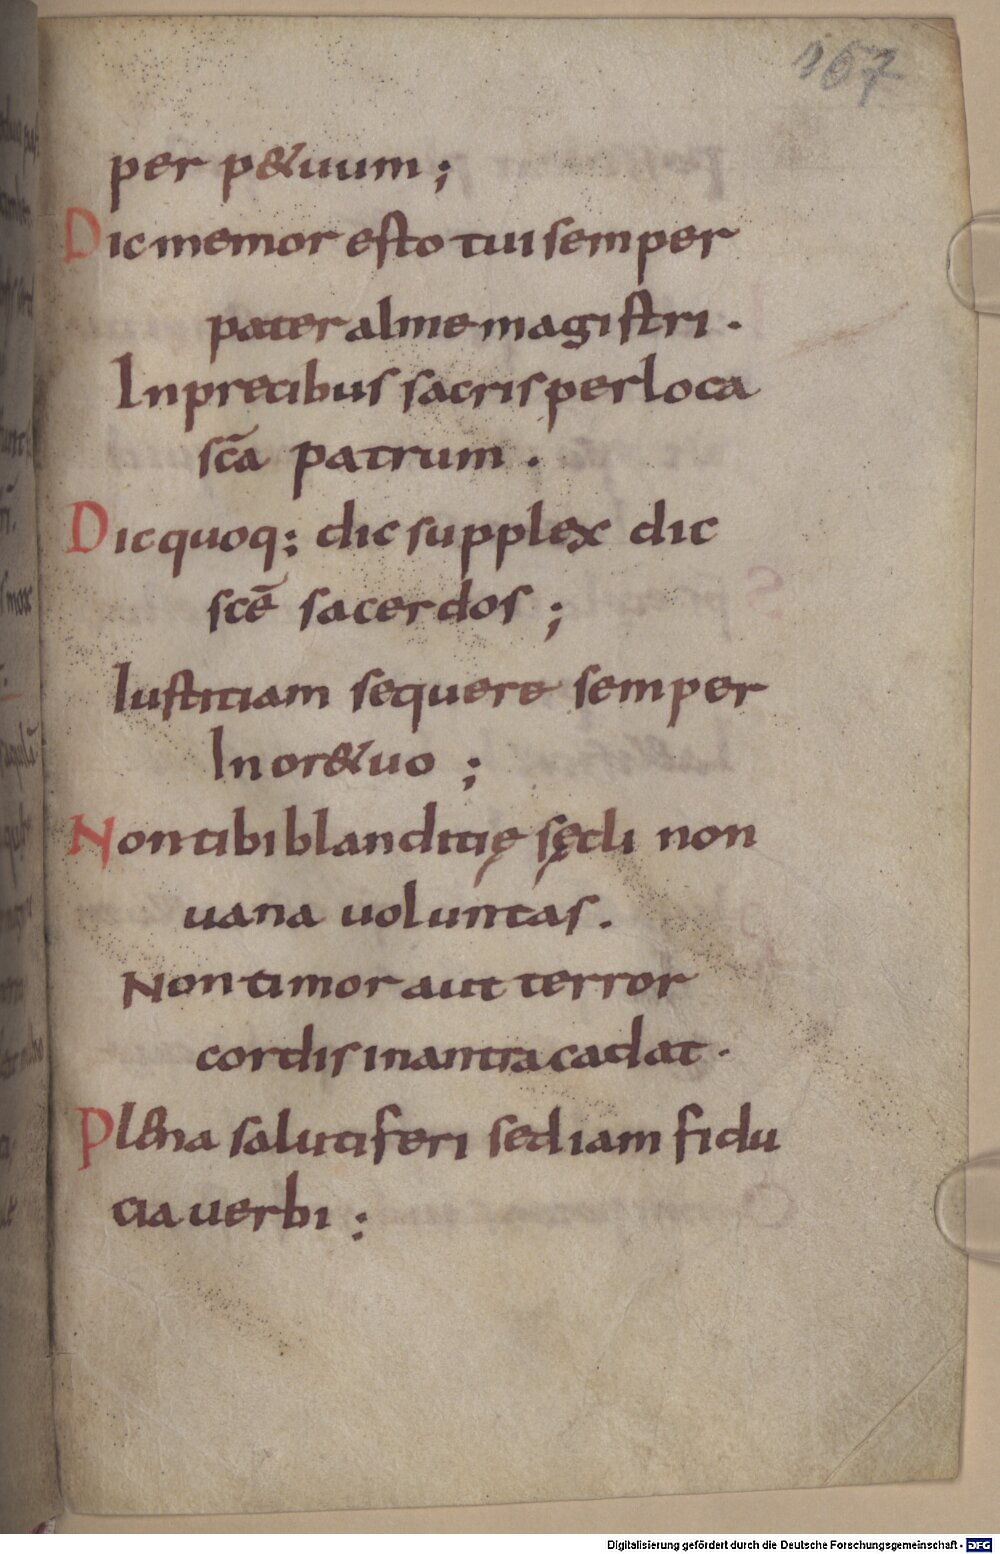 167
per p&uum;
Dic memor esto tui semper
pater alme magistri.
In precibus sacris per loca
sc̄a patrum.
Dic quoq; dic supplex dic
sc̄e sacerdos;
Iustitiam sequere semper
In or&uo;
Non tibi blanditię sędi non
uana uoluntas.
Non timor aut terror
cordis in antra cadat.
Pl&na salutiferi sed iam fidu
cia uerbi;
Digitalisierung gefördert durch die Deutsche Forschungsgemeinschaft - DFG